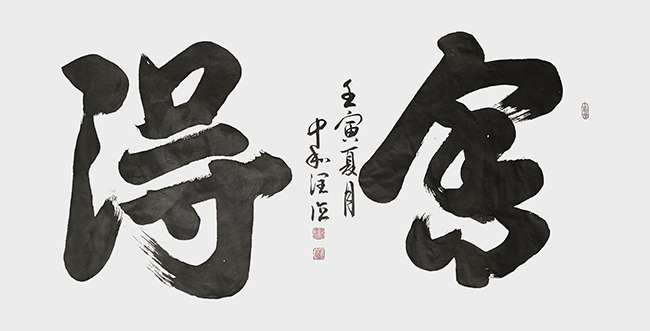 舍得
壬寅夏月
中和